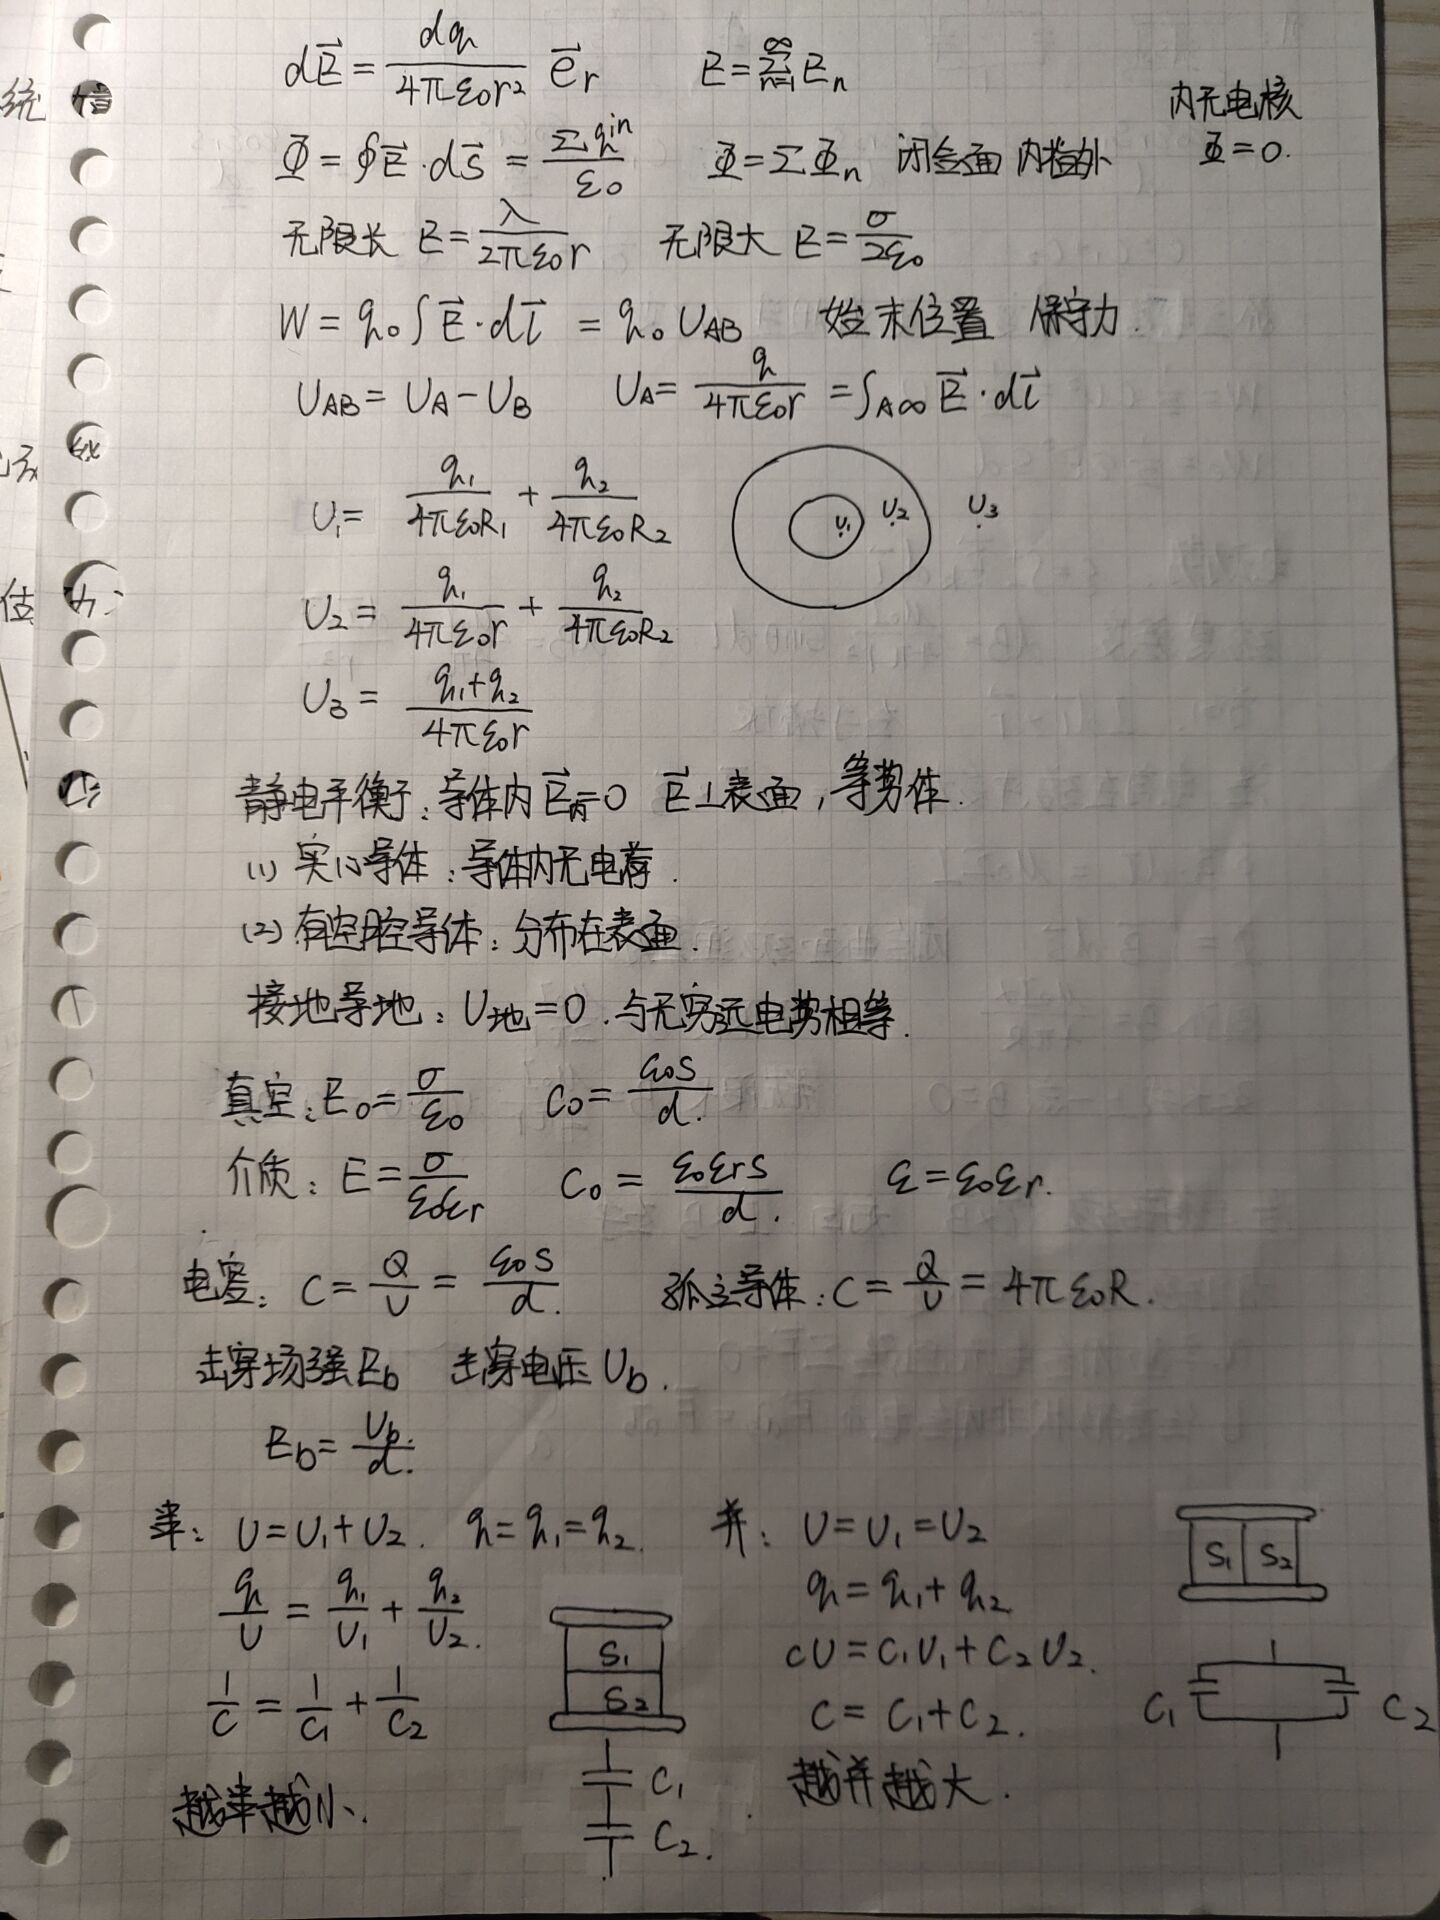 dE⃗ = dq/(4πε₀r²) e⃗r   E = Σ(n=1→∞) Eₙ
内无电核
Φ = ∮E⃗·dS⃗ = Σqⁱⁿ/ε₀   Φ = ΣΦₙ 闭合面 内 外
Φ = 0.
无限长 E = λ/(2πε₀r)   无限大 E = σ/(2ε₀)
W = q₀∫E⃗·dl⃗ = q₀U_AB   始末位置 保守力.
U_AB = U_A − U_B   U_A = q/(4πε₀r) = ∫_A∞ E⃗·dl⃗
U₁ = q₁/(4πε₀R₁) + q₂/(4πε₀R₂)
U₁ U₂ U₃
U₂ = q₁/(4πε₀r) + q₂/(4πε₀R₂)
U₃ = (q₁+q₂)/(4πε₀r)
静电平衡: 导体内E⃗内=0 E⃗⊥表面, 等势体.
(1) 实心导体: 导体内无电荷.
(2) 有空腔导体: 分布在表面.
接地导地: U地=0. 与无穷远电势相等.
真空: E₀ = σ/ε₀   C₀ = ε₀S/d.
介质: E = σ/(ε₀εr)   C₀ = ε₀εrS/d.   ε = ε₀εr.
电容: C = Q/U = ε₀S/d.   孤立导体: C = Q/U = 4πε₀R.
击穿场强Eb 击穿电压Ub.
Eb = Ub/d.
串: U = U₁+U₂. q = q₁ = q₂.
q/U = q₁/U₁ + q₂/U₂.
1/C = 1/C₁ + 1/C₂
越串越小.
S₁
S₂
C₁
C₂.
并: U = U₁ = U₂
q = q₁+q₂
CU = C₁U₁+C₂U₂.
C = C₁+C₂.
越并越大.
S₁ S₂
C₁ C₂
统
信
估